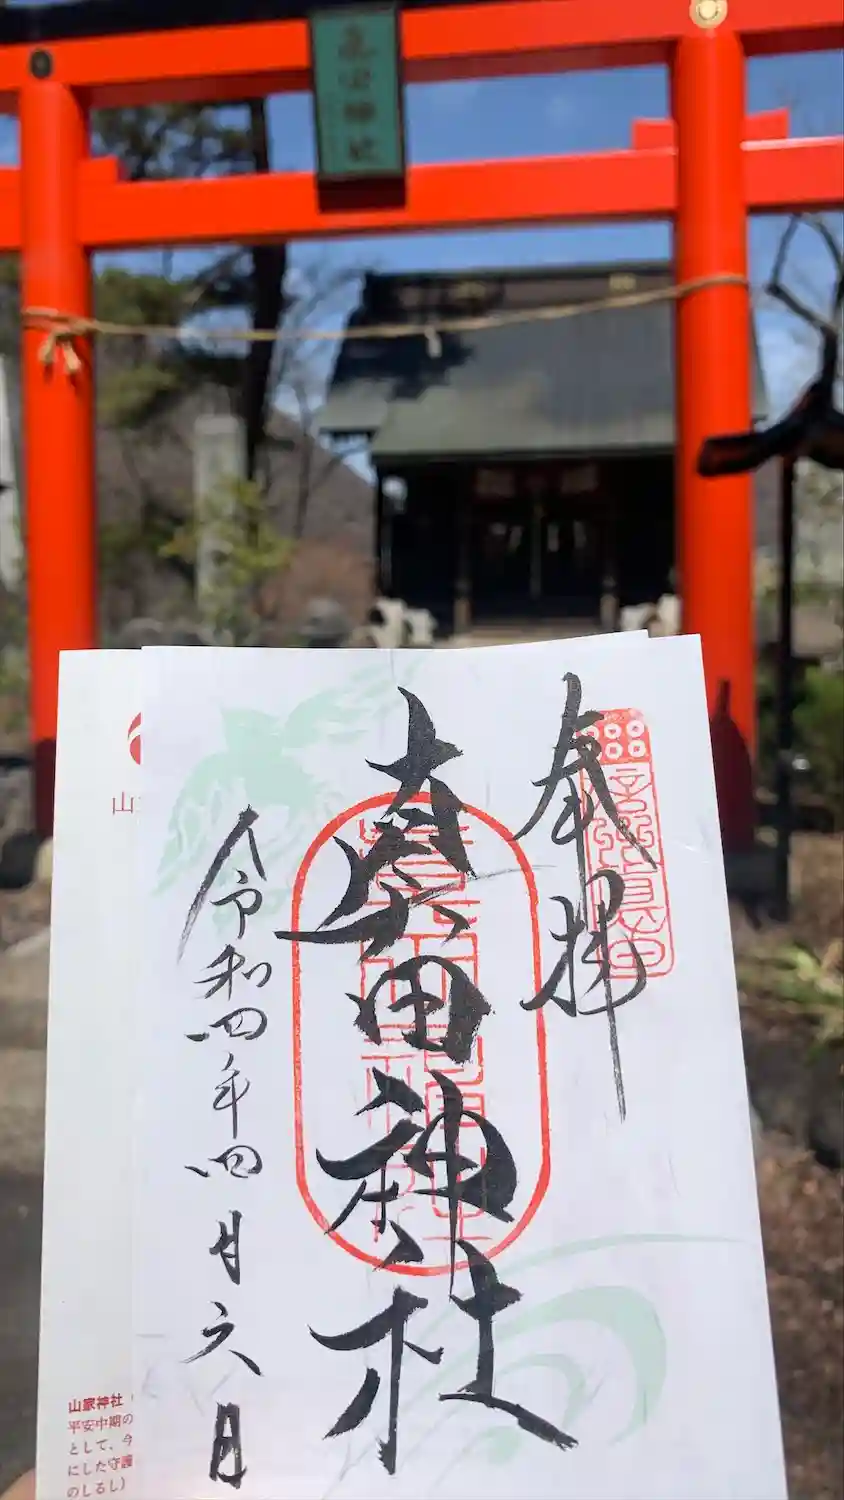 真田神社
奉拝
真田神社
令和四年四月六日
山家神社
平安中期の
として、今
にした守護
のしるし)